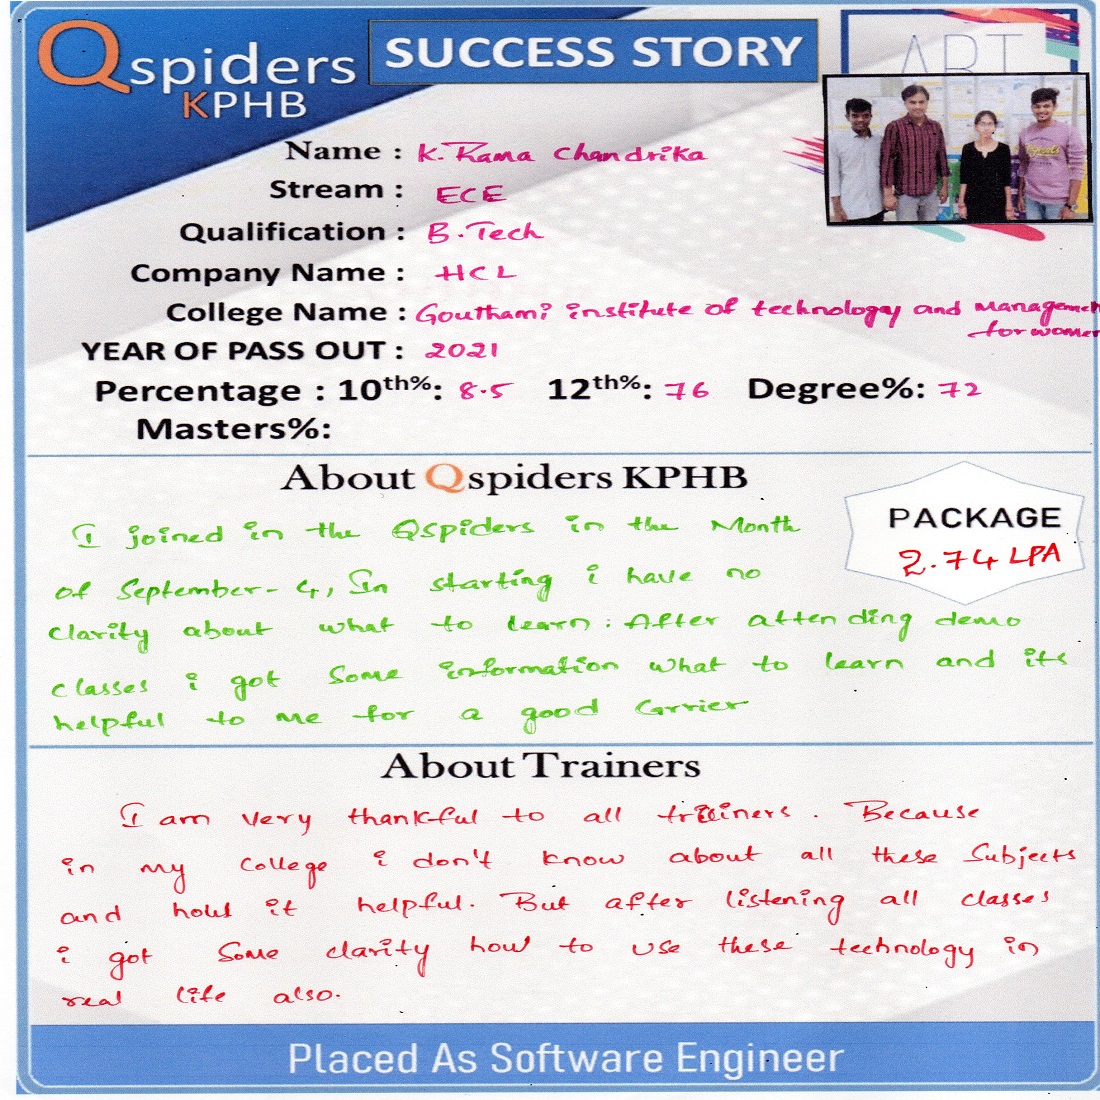 Qspiders
KPHB
SUCCESS STORY
ART
Name : K. Rama Chandrika
Stream : ECE
Qualification : B.Tech
Company Name : HCL
College Name : Gouthami institute of technology and Management
for women
YEAR OF PASS OUT : 2021
Percentage : 10th%: 8.5 12th%: 76 Degree%: 72
Masters%:
About Qspiders KPHB
PACKAGE
2.74 LPA
I joined in the Qspiders in the Month
of September-4, In starting i have no
clarity about what to learn. After attending demo
classes i got some information what to learn and its
helpful to me for a good Carrier
About Trainers
I am very thankful to all trainers. Because
in my college i don't know about all these subjects
and how it helpful. But after listening all classes
i got some clarity how to use these technology in
real life also.
Placed As Software Engineer